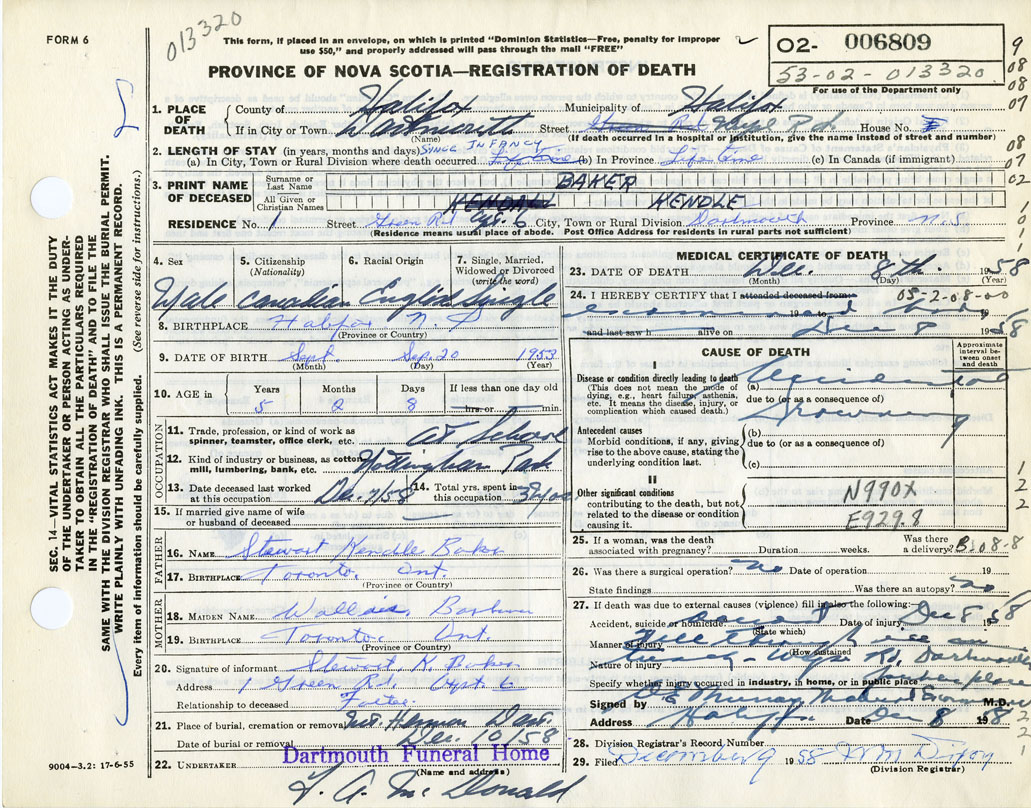 FORM 6
013320
This form, if placed in an envelope, on which is printed "Dominion Statistics—Free, penalty for improper
use $50," and properly addressed will pass through the mail "FREE"
PROVINCE OF NOVA SCOTIA—REGISTRATION OF DEATH
02- 006809
53-02-013320
For use of the Department only
9
08
08
07
08
07
02
SEC. 14—VITAL STATISTICS ACT MAKES IT THE DUTY
OF THE UNDERTAKER OR PERSON ACTING AS UNDER-
TAKER TO OBTAIN ALL THE PARTICULARS REQUIRED
IN THE "REGISTRATION OF DEATH" AND TO FILE THE
SAME WITH THE DIVISION REGISTRAR WHO SHALL ISSUE THE BURIAL PERMIT.
WRITE PLAINLY WITH UNFADING INK. THIS IS A PERMANENT RECORD.
Every item of information should be carefully supplied. (See reverse side for instructions.)
1. PLACE OF DEATH
County of Halifax Municipality of Halifax
If in City or Town Dartmouth Street Rd House No.
(Name) (If death occurred in a hospital or institution, give the name instead of street and number)
2. LENGTH OF STAY (in years, months and days) SINCE INFANCY
(a) In City, Town or Rural Division where death occurred Life Time (b) In Province Life Time (c) In Canada (if immigrant)
3. PRINT NAME OF DECEASED
Surname or Last Name BAKER
All Given or Christian Names KENDALL KENDLE
RESIDENCE No. 1 Street Green Rd Apt. 6 City, Town or Rural Division Dartmouth Province N.S
(Residence means usual place of abode. Post Office Address for residents in rural parts not sufficient)
4. Sex
Male
5. Citizenship (Nationality)
Canadian
6. Racial Origin
English
7. Single, Married, Widowed or Divorced (write the word)
Single
8. BIRTHPLACE Halifax N.S
(Province or Country)
9. DATE OF BIRTH Sept. Sep. 20 1953
(Month) (Day) (Year)
10. AGE in Years Months Days If less than one day old
5 2 8 hrs. or min.
OCCUPATION
11. Trade, profession, or kind of work as spinner, teamster, office clerk, etc. At School
12. Kind of industry or business, as cotton mill, lumbering, bank, etc. Nottingham Park
13. Date deceased last worked at this occupation Dec 7/58
14. Total yrs. spent in this occupation
15. If married give name of wife or husband of deceased
FATHER
16. NAME Stewart Kendle Baker
17. BIRTHPLACE Toronto, Ont.
(Province or Country)
MOTHER
18. MAIDEN NAME
19. BIRTHPLACE Toronto, Ont.
(Province or Country)
20. Signature of informant Stewart K Baker
Address 1 Green Rd, Apt 6
Relationship to deceased Father
21. Place of burial, cremation or removal Mt. Hermon Dart.
Date of burial or removal Dec. 10/58
22. UNDERTAKER Dartmouth Funeral Home
(Name and address)
MEDICAL CERTIFICATE OF DEATH
23. DATE OF DEATH Dec. 8th. 1958
(Month) (Day) (Year)
24. I HEREBY CERTIFY that I attended deceased from: 08-2-08-00
examined 19 to body 19
and last saw h alive on Dec 8 1958
CAUSE OF DEATH
Approximate interval between onset and death
I
Disease or condition directly leading to death
(This does not mean the mode of dying, e.g., heart failure, asthenia, etc. It means the disease, injury, or complication which caused death.)
(a) Accidental
due to (or as a consequence of)
Drowning
Antecedent causes
Morbid conditions, if any, giving rise to the above cause, stating the underlying condition last.
(b)
due to (or as a consequence of)
(c)
II
Other significant conditions
contributing to the death, but not related to the disease or condition causing it.
N990X
E929.8
25. If a woman, was the death associated with pregnancy? Duration weeks. Was there a delivery? B108-8
26. Was there a surgical operation? no Date of operation
State findings Was there an autopsy? no
27. If death was due to external causes (violence) fill in also the following:
Accident, suicide or homicide. accident Date of injury Dec 8 1958
(State which)
Manner of injury Fell thru ice on
(How sustained)
Nature of injury Rd, Dartmouth
Specify whether injury occurred in industry, in home, or in public place
Signed by M.D.
Address Halifax Date Dec 8 1958
28. Division Registrar's Record Number
29. Filed December 9 1958
(Division Registrar)
9004—3.2: 17-6-55